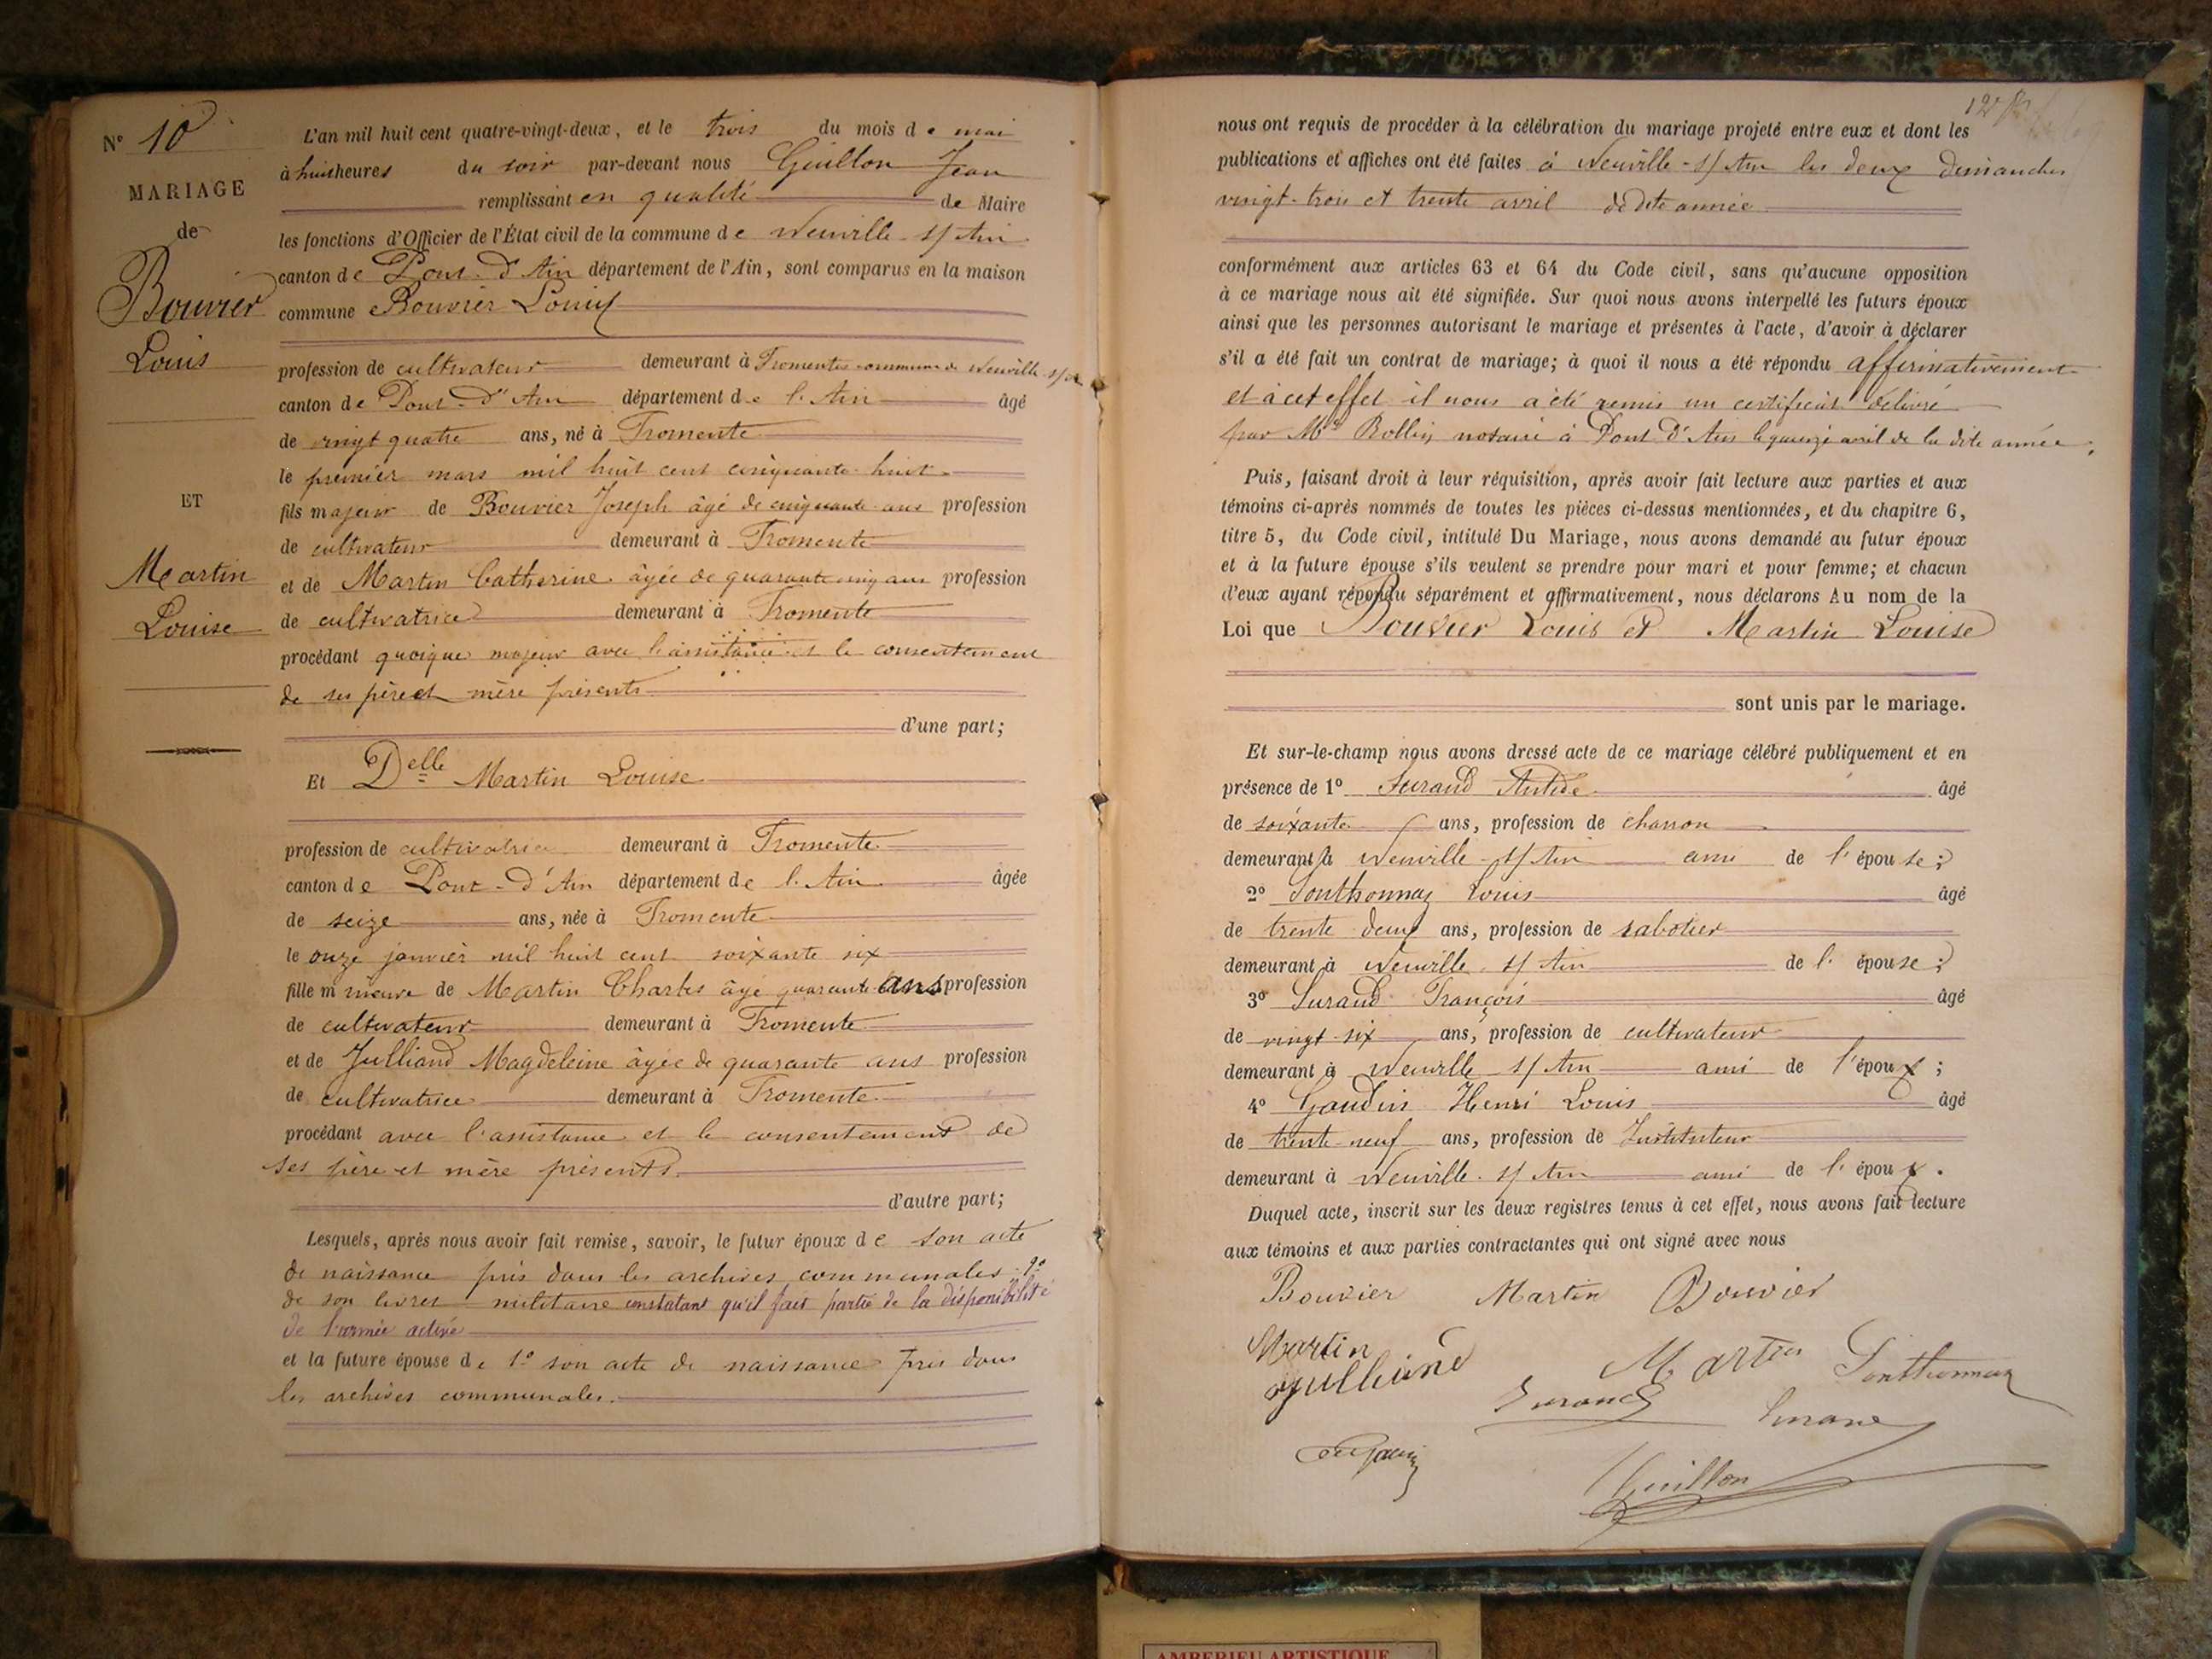 N° 10
MARIAGE
de
Bouvier
Louis
ET
Martin
Louise
L'an mil huit cent quatre-vingt-deux, et le trois du mois de mai
à huit heures du soir par-devant nous Guillon Jean
remplissant en qualité de Maire
les fonctions d'Officier de l'État civil de la commune de Neuville s/ Ain
canton de Pont-d'Ain département de l'Ain, sont comparus en la maison
commune Bouvier Louis
profession de cultivateur demeurant à Fromentes commune de Neuville s/ A
canton de Pont-d'Ain département de l'Ain âgé
de vingt quatre ans, né à Fromente
le premier mars mil huit cent cinquante huit
fils majeur de Bouvier Joseph âgé de cinquante ans profession
de cultivateur demeurant à Fromente
et de Martin Catherine âgée de quarante cinq ans profession
de cultivatrice demeurant à Fromente
procédant quoique majeur avec l'assistance et le consentement
de ses père et mère présents
d'une part;
Et Delle Martin Louise
profession de cultivatrice demeurant à Fromente
canton de Pont-d'Ain département de l'Ain âgée
de seize ans, née à Fromente
le onze janvier mil huit cent soixante six
fille mineure de Martin Charles âgé quarante ans profession
de cultivateur demeurant à Fromente
et de Julliand Magdeleine âgée de quarante ans profession
de cultivatrice demeurant à Fromente
procédant avec l'assistance et le consentement de
ses père et mère présents.
d'autre part;
Lesquels, après nous avoir fait remise, savoir, le futur époux de son acte
de naissance pris dans les archives communales
de son livret militaire constatant qu'il fait partie de la disponibilité
de l'armée active
et la future épouse de 1° son acte de naissance pris dans
les archives communales.
nous ont requis de procéder à la célébration du mariage projeté entre eux et dont les
publications et affiches ont été faites à Neuville-s/ Ain les deux dimanches
vingt-trois et trente avril de dite année
conformément aux articles 63 et 64 du Code civil, sans qu'aucune opposition
à ce mariage nous ait été signifiée. Sur quoi nous avons interpellé les futurs époux
ainsi que les personnes autorisant le mariage et présentes à l'acte, d'avoir à déclarer
s'il a été fait un contrat de mariage; à quoi il nous a été répondu affirmativement
et à cet effet il nous a été remis un certificat délivré
par Me Rollin notaire à Pont d'Ain le quinze avril de la dite année.
Puis, faisant droit à leur réquisition, après avoir fait lecture aux parties et aux
témoins ci-après nommés de toutes les pièces ci-dessus mentionnées, et du chapitre 6,
titre 5, du Code civil, intitulé Du Mariage, nous avons demandé au futur époux
et à la future épouse s'ils veulent se prendre pour mari et pour femme; et chacun
d'eux ayant répondu séparément et affirmativement, nous déclarons Au nom de la
Loi que Bouvier Louis et Martin Louise
sont unis par le mariage.
Et sur-le-champ nous avons dressé acte de ce mariage célébré publiquement et en
présence de 1° Surand Antide âgé
de soixante ans, profession de charron
demeurant à Neuville-s/ Ain ami de l'épouse;
2° Sonthonnaz Louis âgé
de trente deux ans, profession de sabotier
demeurant à Neuville s/ Ain de l'épouse;
3° Surand François âgé
de vingt-six ans, profession de cultivateur
demeurant à Neuville s/ Ain ami de l'époux;
4° Gaudin Henri Louis âgé
de trente-neuf ans, profession de Instituteur
demeurant à Neuville s/ Ain ami de l'époux.
Duquel acte, inscrit sur les deux registres tenus à cet effet, nous avons fait lecture
aux témoins et aux parties contractantes qui ont signé avec nous
Bouvier Martin Bouvier
Martin
Julliand Martin Sonthonnaz
Surand Surand
Guillon
AMBERIEU ARTISTIQUE